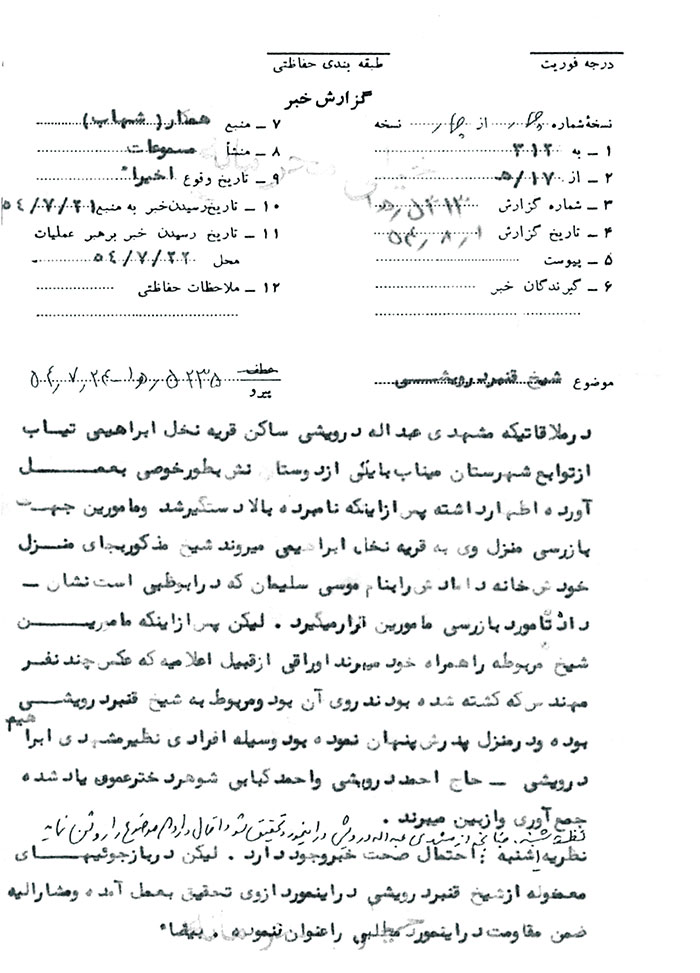 درجه فوریت
طبقه بندی حفاظتی
گزارش خبر
نسخهٔ شماره چهار از چهار نسخه
۱ ـ به ۳۱۲
۲ ـ از ۱۷/ه
۳ ـ شماره گزارش
۴ ـ تاریخ گزارش ۵۴٫۸٫۱
۵ ـ پیوست
۶ ـ گیرندگان خبر
۷ ـ منبع همکار (شهاب)
۸ ـ منشأ مسموعات
۹ ـ تاریخ وقوع اخیراً
۱۰ ـ تاریخ رسیدن خبر به منبع ۵۴/۷/۲۱
۱۱ ـ تاریخ رسیدن خبر برهبر عملیات
محل ۵۴/۷/۲۲
۱۲ ـ ملاحظات حفاظتی
موضوع شیخ قنبردرویشی
عطف
پیرو
درملاقاتیکه مشهدی عبداله درویشی ساکن قریه نخل ابراهیمی تیاب
ازتوابع شهرستان میناب بایکی ازدوستانش بطورخوصی بعمل
آورده اظهارداشته پس ازاینکه نامبرده بالا دستگیرشد ومامورین جهت
بازرسی منزل وی به قریه نخل ابراهیمی میروند شیخ مذکوربجای منزل
خودش خانه دامادش رابنام موسی سلیمان که درابوظبی است نشان ـ
داد تامورد بازرسی مامورین قرارمیگیرد . لیکن پس ازاینکه مامورین
شیخ مربوطه راهمراه خود میبرند اوراقی ازقبیل اعلامیه که عکس چند نفر
مهندس که کشته شده بودند روی آن بود ومربوط به شیخ قنبردرویشی
بوده ودرمنزل پدرش پنهان نموده بود وسیله افرادی نظیرمشهدی ابراهیم
درویشی ـ حاج احمددرویشی واحمدکبابی شوهردخترعموی یادشده
جمع آوری وازبین میبرند .
نظریه شنبه . چنانچه از مشهدی عبداله درویشی دراینمورد تحقیق شود احتمال دارد موضوع را روشن نماید
نظریه یکشنبه : احتمال صحت خبروجوددارد . لیکن دربازجوئیهای
معموله ازشیخ قنبردرویشی دراینمورد ازوی تحقیق بعمل آمده ومشارالیه
ضمن مقاومت دراینمورد مطلبی راعنوان ننموده .